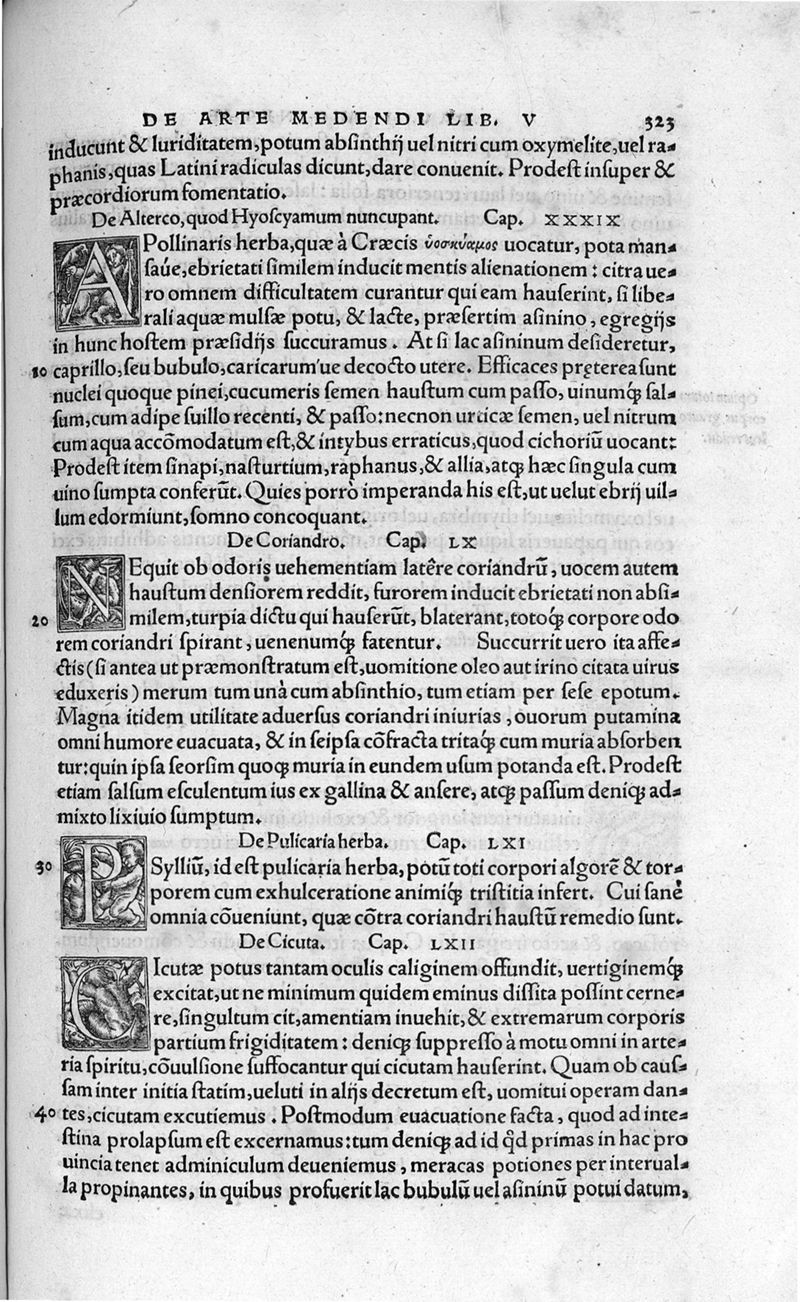 DE ARTE MEDENDI LIB. V 323
inducunt & luriditatem, potum absinthij uel nitri cum oxymelite, uel ra-
phanis, quas Latini radiculas dicunt, dare conuenit. Prodest insuper &
præcordiorum fomentatio.
De Alterco, quod Hyoscyamum nuncupant. Cap. XXXIX
APollinaris herba, quæ à Græcis ὑοσκύαμος uocatur, pota man-
saúe, ebrietati similem inducit mentis alienationem: citra ue-
ro omnem difficultatem curantur qui eam hauserint, si libe-
rali aquæ mulsæ potu, & lacte, præsertim asinino, egregijs
in hunc hostem præsidijs succuramus. At si lac asininum desideretur,
10 caprillo, seu bubulo, caricarum'ue decocto utere. Efficaces prętereasunt
nuclei quoque pinei, cucumeris semen haustum cum passo, uinumq́; sal-
sum, cum adipe suillo recenti, & passo: necnon urticæ semen, uel nitrum
cum aqua accōmodatum est, & intybus erraticus, quod cichoriū uocant:
Prodest item sinapi, nasturtium, raphanus, & allia, atq; hæc singula cum
uino sumpta conferūt. Quies porrò imperanda his est, ut uelut ebrij uil-
lum edormiunt, somno concoquant.
De Coriandro. Cap. LX
NEquit ob odoris uehementiam latêre coriandrū, uocem autem
haustum densiorem reddit, furorem inducit ebrietati non absi-
20 milem, turpia dictu qui hauserūt, blaterant, totoq́; corpore odo
rem coriandri spirant, uenenumq́; fatentur. Succurrit uero ita affe-
ctis (si antea ut præmonstratum est, uomitione oleo aut irino citata uirus
eduxeris) merum tum unà cum absinthio, tum etiam per sese epotum.
Magna itidem utilitate aduersus coriandri iniurias, ouorum putamina
omni humore euacuata, & in seipsa cōfracta tritaq́; cum muria absorben
tur: quin ipsa seorsim quoq; muria in eundem usum potanda est. Prodest
etiam salsum esculentum ius ex gallina & ansere, atq; passum deniq; ad-
mixto lixiuio sumptum.
De Pulicaria herba. Cap. LXI
30 PSylliū, id est pulicaria herba, potū toti corpori algorē & tor-
porem cum exhulceratione animiq́; tristitia infert. Cui sanè
omnia cōueniunt, quæ cōtra coriandri haustū remedio sunt.
De Cicuta. Cap. LXII
CIcutæ potus tantam oculis caliginem offundit, uertiginemq́;
excitat, ut ne minimum quidem eminus dissita possint cerne-
re, singultum cit, amentiam inuehit, & extremarum corporis
partium frigiditatem: deniq; suppresso à motu omni in arte-
ria spiritu, cōuulsione suffocantur qui cicutam hauserint. Quam ob caus-
sam inter initia statim, ueluti in alijs decretum est, uomitui operam dan-
40 tes, cicutam excutiemus. Postmodum euacuatione facta, quod ad inte-
stina prolapsum est excernamus: tum deniq; ad id qđ primas in hac pro
uincia tenet adminiculum deueniemus, meracas potiones per interual-
la propinantes, in quibus profuerit lac bubulū uel asininū potui datum,